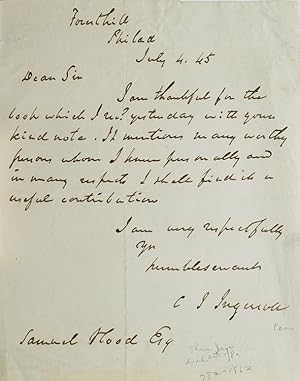 Fonthill
Philad
July 4. 45
Dear Sir
I am thankful for the
book which I recd yesterday with your
kind note. It mentions many worthy
persons whom I knew personally and
in many respects I shall find it a
useful contribution
I am very respectfully
Yr
humble servant
C J Ingersoll
Penn
Samuel Hood Esq
1782-1862